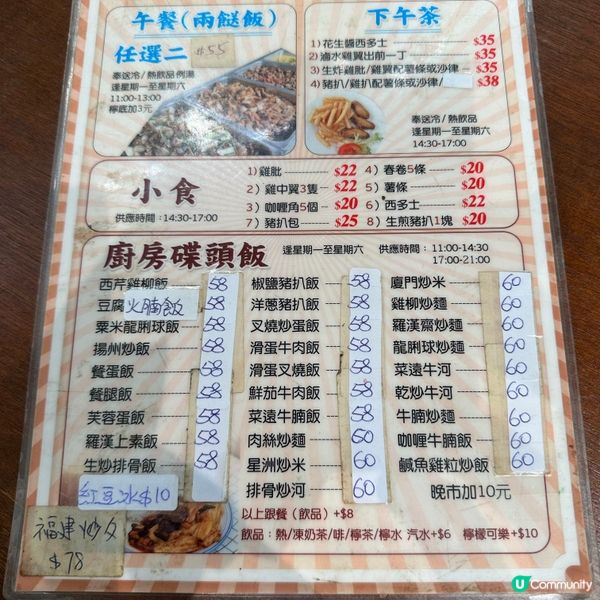 午餐(兩餸飯)
任選二 $55
奉送冷/熱飲品例湯
逢星期一至星期六
11:00-13:00
檸底加3元
下午茶
1)花生醬西多士 $35
2)滷水雞翼出前一丁 $35
3)生炸雞肶/雞翼配薯條或沙律 $35
4)豬扒/雞扒配薯條或沙律/ $38
奉送冷/熱飲品
逢星期一至星期六
14:30-17:00
小食
供應時間:14:30-17:00
1)雞肶 $22
2)雞中翼3隻 $22
3)咖喱角5個 $20
7)豬扒包 $25
4)春卷5條 $20
5)薯條 $20
6)西多士 $22
8)生煎豬扒1塊 $20
廚房碟頭飯 逢星期一至星期六 供應時間:11:00-14:30
17:00-21:00
西芹雞柳飯 58
豆腐火腩飯 58
粟米龍脷球飯 58
揚州炒飯 58
餐蛋飯 58
餐腿飯 58
芙蓉蛋飯 58
羅漢上素飯 58
生炒排骨飯 58
紅豆冰$10
福建炒
$78
椒鹽豬扒飯 58
洋蔥豬扒飯 58
叉燒炒蛋飯 58
滑蛋牛肉飯 58
滑蛋叉燒飯 58
鮮茄牛肉飯 58
菜遠牛腩飯 58
肉絲炒麵 60
星洲炒米 60
排骨炒河 60
廈門炒米 60
雞柳炒麵 60
羅漢齋炒麵 60
龍脷球炒麵 60
菜遠牛河 60
乾炒牛河 60
牛腩炒麵 60
咖喱牛腩飯 60
鹹魚雞粒炒飯 60
晚市加10元
以上跟餐(飲品)+$8
飲品:熱/凍奶茶/啡/檸茶/檸水 汽水+$6 檸檬可樂+$10
U Community